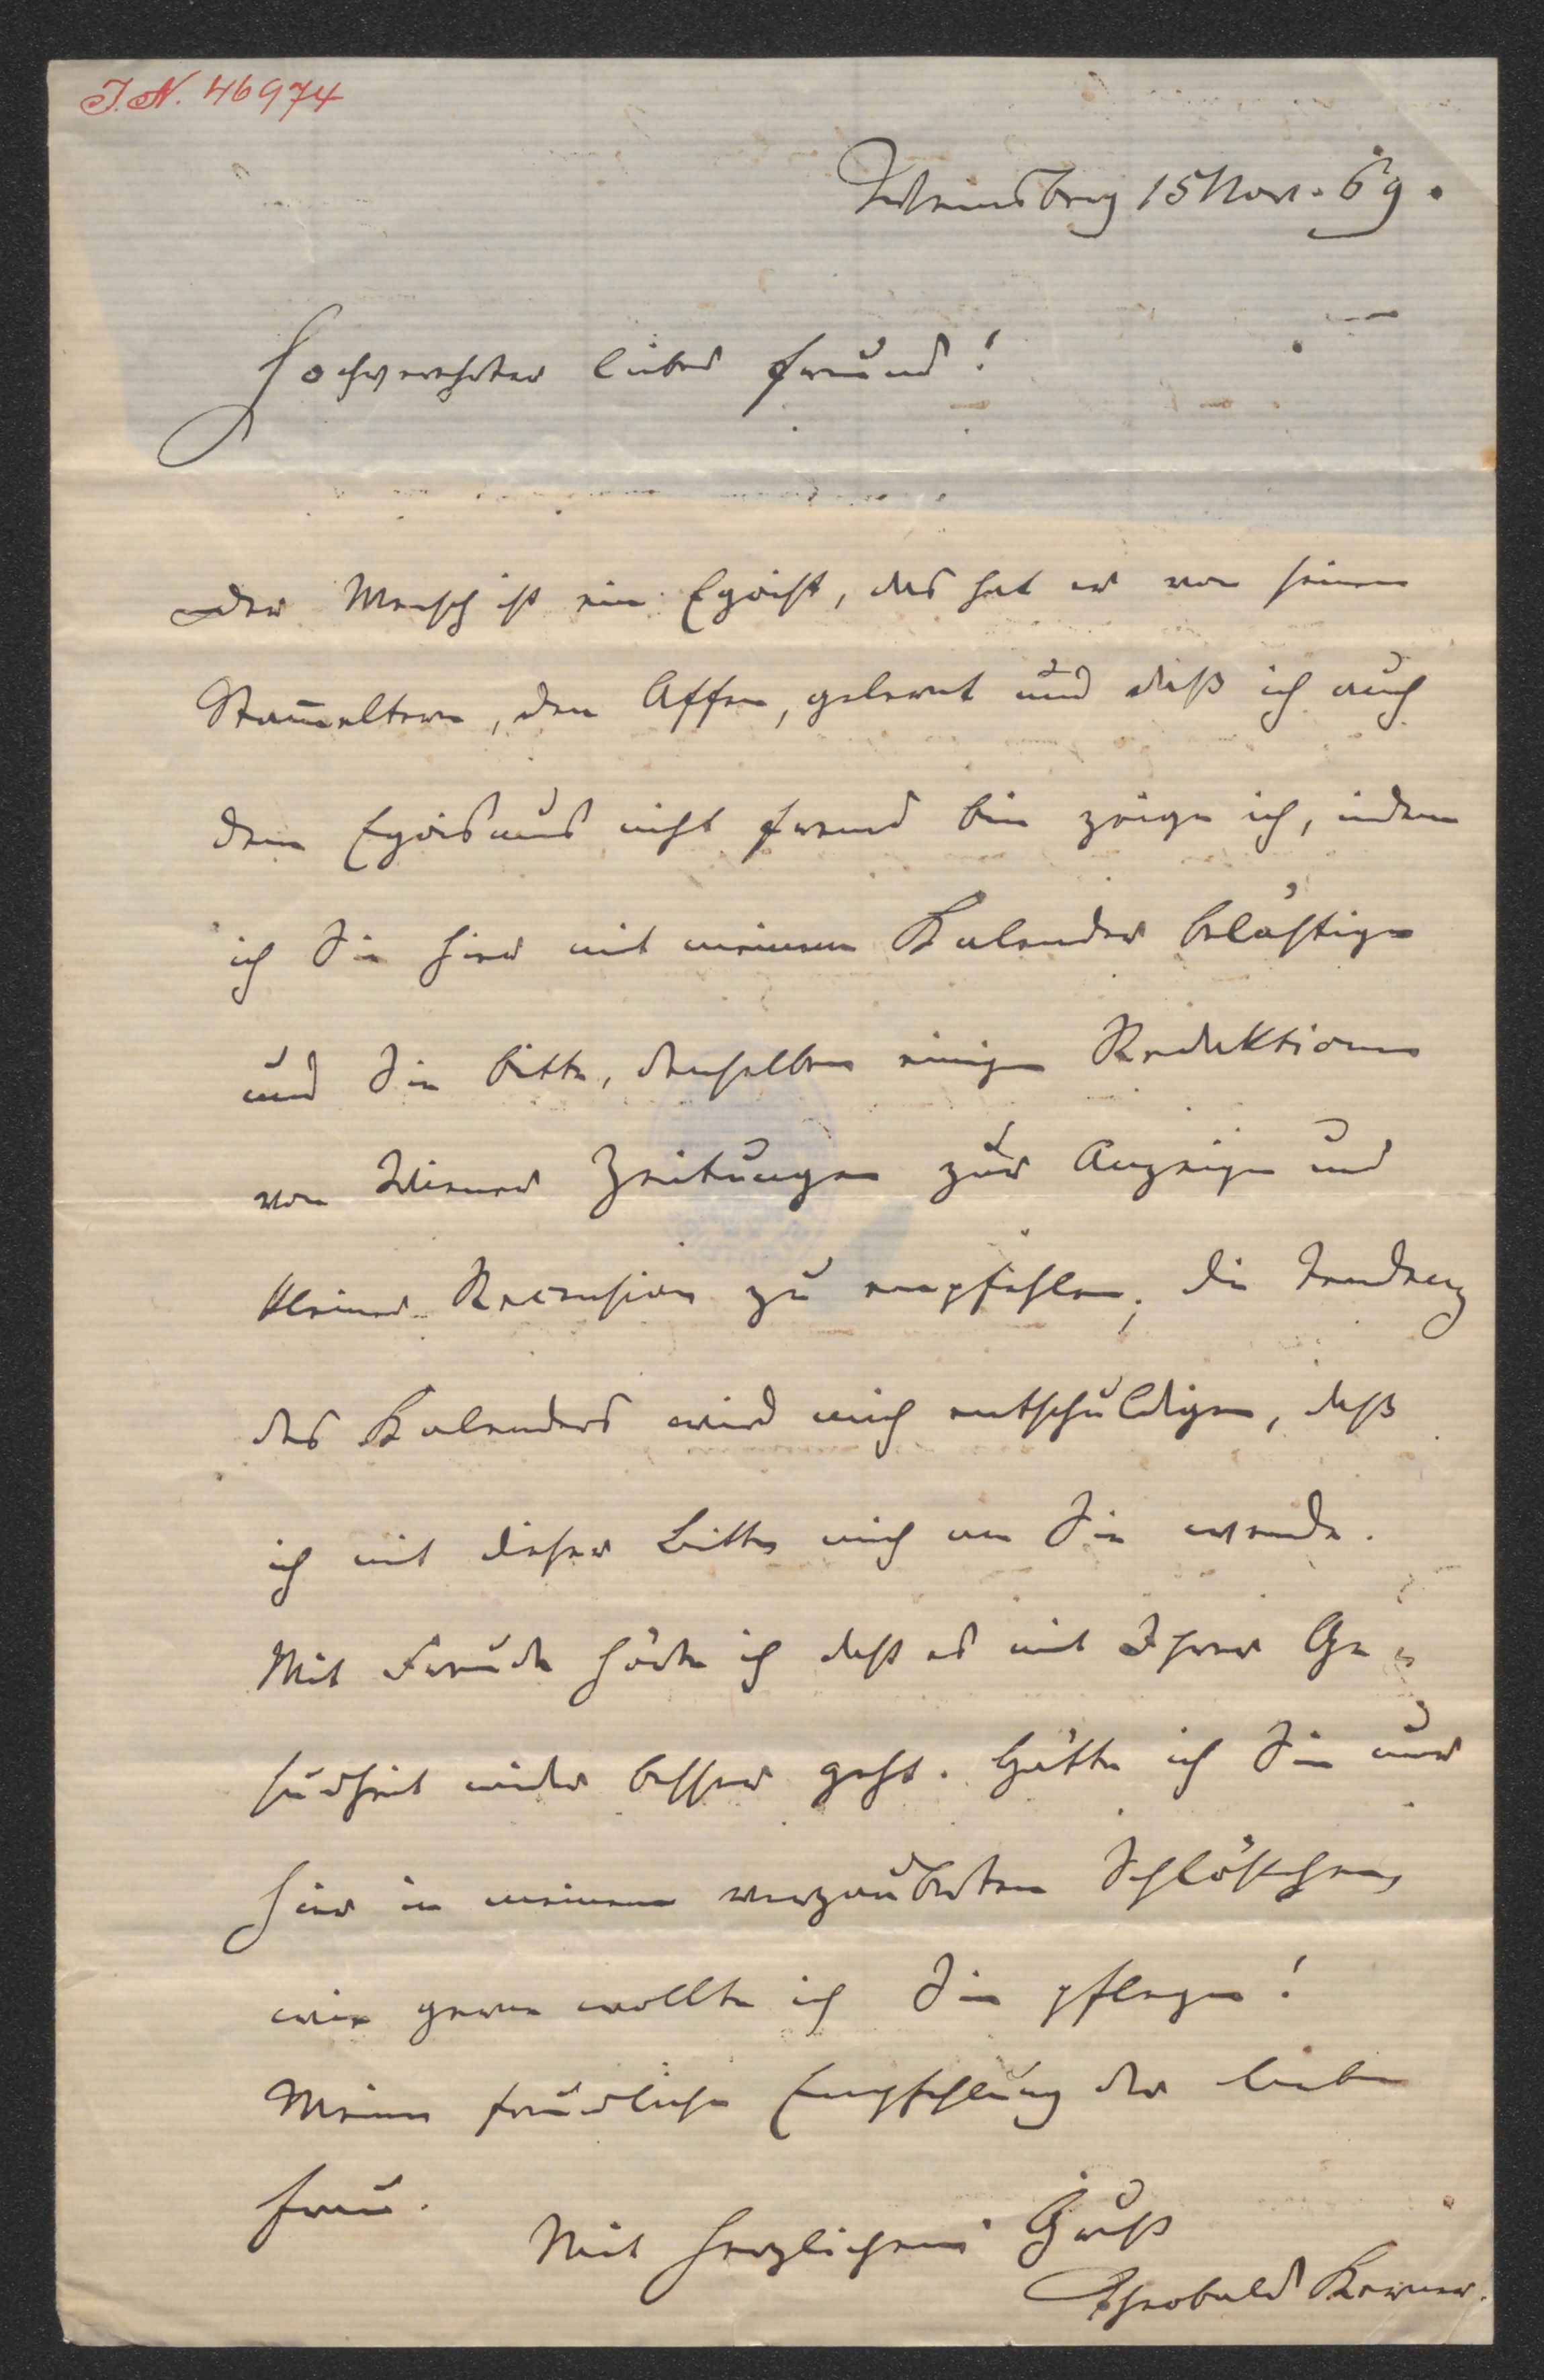 J.N. 46974
Weinsberg 15 Nov. 69.
Hochverehrter lieber Freund!
Der Mensch ist ein Egoist, das hat er von seinen
Stam̅eltern, den Affen, gelernt und daß ich auch
dem Egoismus nicht fremd bin zeige ich, indem
ich Sie hier mit meinem Kalender belästige
und Sie bitte, denselben einigen Redaktionen
von Wiener Zeitungen zur Anzeige und
kleiner Recension zu empfehlen; die Tendenz
des Kalenders wird mich entschuldigen, daß
ich mit dieser Bitte mich an Sie wende.
Mit Freude hörte ich daß es mit Ihrer Ge-
sundheit wieder besser geht. Hätte ich Sie nur
hier in meinem verzauberten Schlößchen,
wie gerne wollte ich Sie pflegen!
Meine freundliche Empfehlung der lieben
Frau.
Mit herzlichem Gruß
Theobald Kerner.